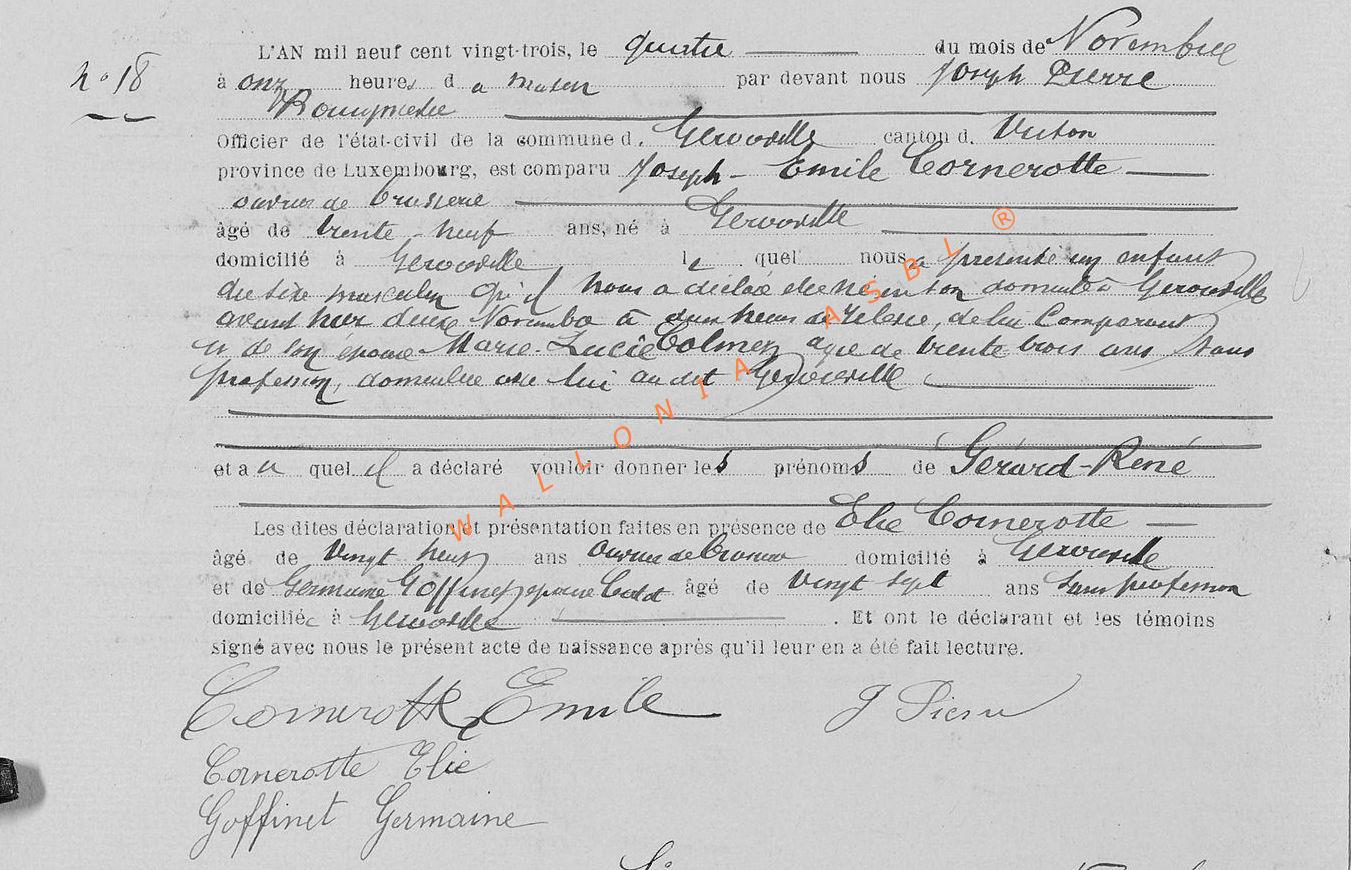 N° 18
L'AN mil neuf cent vingt-trois, le quatre du mois de Novembre
à onze heures du matin par devant nous Joseph Pierre
Bourgmestre
Officier de l'état-civil de la commune d. Gérouville canton d. Virton
province de Luxembourg, est comparu Joseph - Emile Cornerotte
ouvrier de brasserie
âgé de trente-neuf ans, né à Gérouville
domicilié à Gérouville lequel nous a présenté un enfant
du sexe masculin qu'il nous a déclaré être né en son domicile à Gérouville
avant hier deux Novembre à heures de relevée, de lui Comparant
et de son épouse Marie-Lucie Colmez âgée de trente trois ans sans
profession, domiciliée avec lui au dit Gérouville
et auquel il a déclaré vouloir donner les prénoms de Gérard-René
Les dites déclaration et présentation faites en présence de Elie Cornerotte
âgé de vingt neuf ans ouvrier de brasserie domicilié à Gérouville
et de Germaine Goffinet, épouse âgé de vingt sept ans sans profession
domiciliée à Gérouville . Et ont le déclarant et les témoins
signé avec nous le présent acte de naissance après qu'il leur en a été fait lecture.
Cornerotte Emile J Pierre
Cornerotte Elie
Goffinet Germaine
WALLONIA ASBL ®